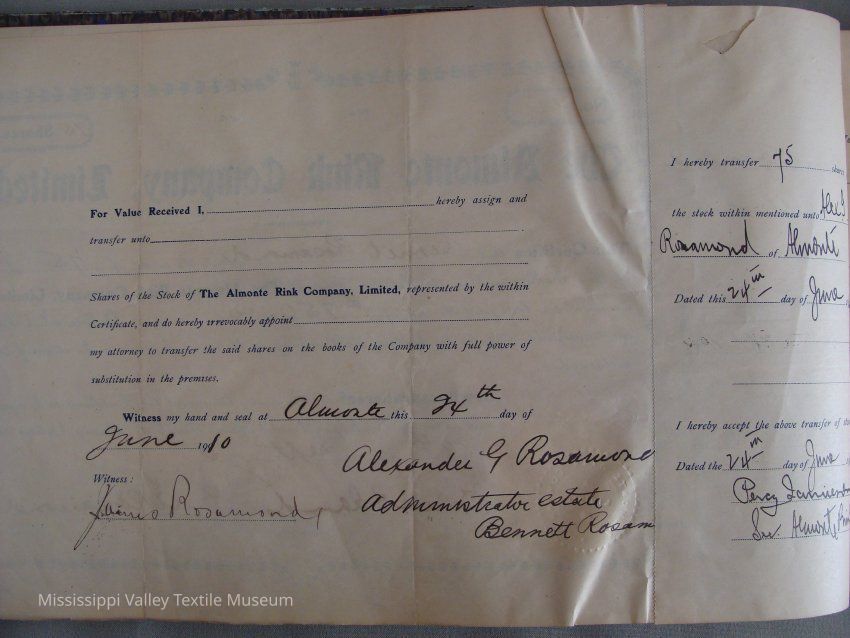 For Value Received I, hereby assign and
transfer unto
Shares of the Stock of The Almonte Rink Company, Limited, represented by the within
Certificate, and do hereby irrevocably appoint
my attorney to transfer the said shares on the books of the Company with full power of
substitution in the premises.
Witness my hand and seal at Almonte this 24th day of
June 1910
Alexander G Rosamond
Witness:
James Rosamond,
Administrator estate
Bennett Rosam
I hereby transfer 75 shares
the stock within mentioned unto Alex G
Rosamond of Almonte
Dated this 24th day of June
I hereby accept the above transfer of the
Dated the 24th day of June
Percy
Sec. Almonte
The Almonte Rink Company, Limited
Mississippi Valley Textile Museum